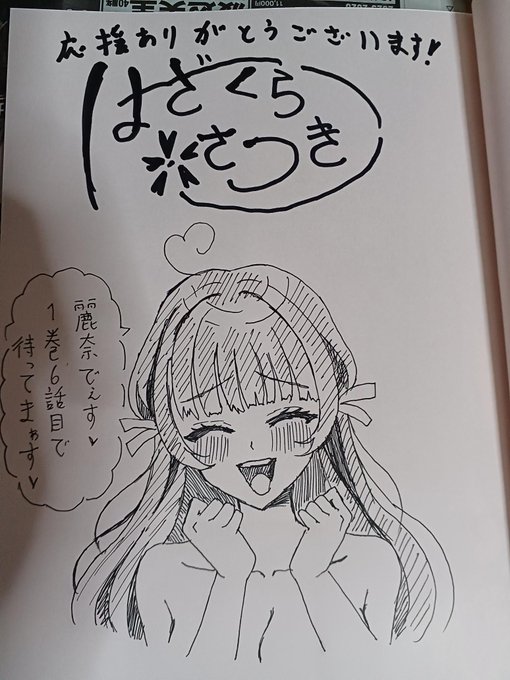 応援ありがとうございます!
はざくら
さつき
麗奈でぇす♥
1巻6話目で
待ってまぁす♥
11,000円